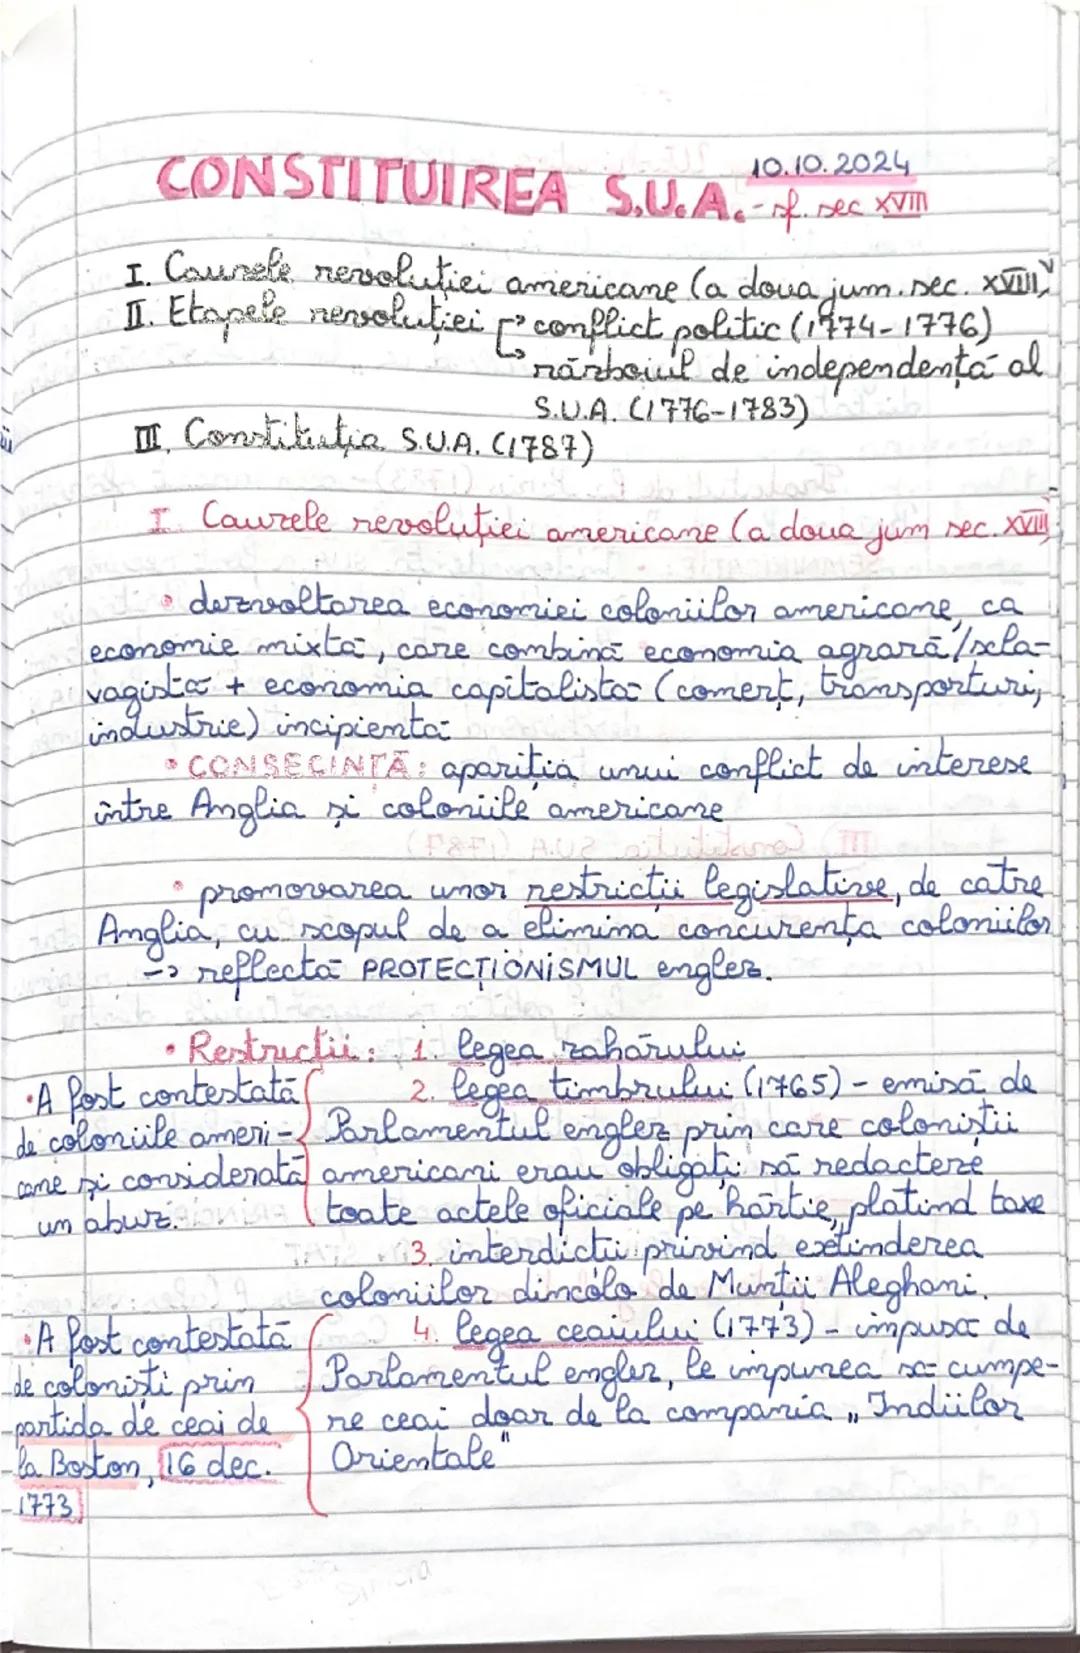 10.10.2024
CONSTITUIREA S.U.A. - sf. sec XVIII
I. Cauzele revoluției americane (a doua jum. sec. XVIII)
II. Etapele revoluției → conflict politic (1774-1776)
→ războiul de independență al
S.U.A. (1776-1783)
III. Constituția S.U.A. (1787)
I. Cauzele revoluției americane (a doua jum sec. XVIII)
• dezvoltarea economiei coloniilor americane, ca
economie mixtă, care combină economia agrară/scla-
vagistă + economia capitalistă (comerț, transporturi,
industrie) incipientă
• CONSECINȚĂ: apariția unui conflict de interese
între Anglia și coloniile americane
• promovarea unor restricții legislative, de către
Anglia, cu scopul de a elimina concurența coloniilor
-> reflectă PROTECȚIONISMUL englez.
• Restricții: 1. legea zahărului
2. legea timbrului (1765) - emisă de
Parlamentul englez prin care coloniștii
americani erau obligați să redacteze
toate actele oficiale pe hârtie, platind taxe
• A fost contestată
de coloniile ameri-
cane și considerată
un abuz.
3. interdicții privind extinderea
coloniilor dincolo de Munții Aleghani.
4. legea ceaiului (1773) - impusă de
Parlamentul englez, le impunea să cumpe-
re ceai doar de la compania „Indiilor
Orientale"
• A fost contestată
de coloniști prin
partida de ceai de
la Boston, 16 dec.
1773